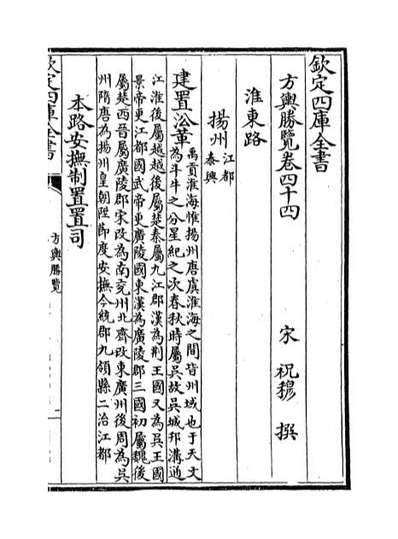 欽定四庫全書
方輿勝覽卷四十四
宋 祝穆 撰
淮東路
揚州 江都
泰興
建置沿革 禹貢淮海惟揚州唐虞淮海之間皆州域也于天文
為斗牛之分星紀之次春秋時屬吳故吳城邗溝通
江淮後屬越越後屬楚秦屬九江郡漢為荆王國又為吳王國
景帝更江都國武帝更廣陵國東漢為廣陵郡三國初屬魏後
屬楚西晉屬廣陵郡宋改為南兖州北齊改東廣州後周為吳
州隋唐為揚州皇朝陞節度安撫今統郡九領縣二治江都
本路安撫制置置司
欽定四庫全書
方輿勝覽